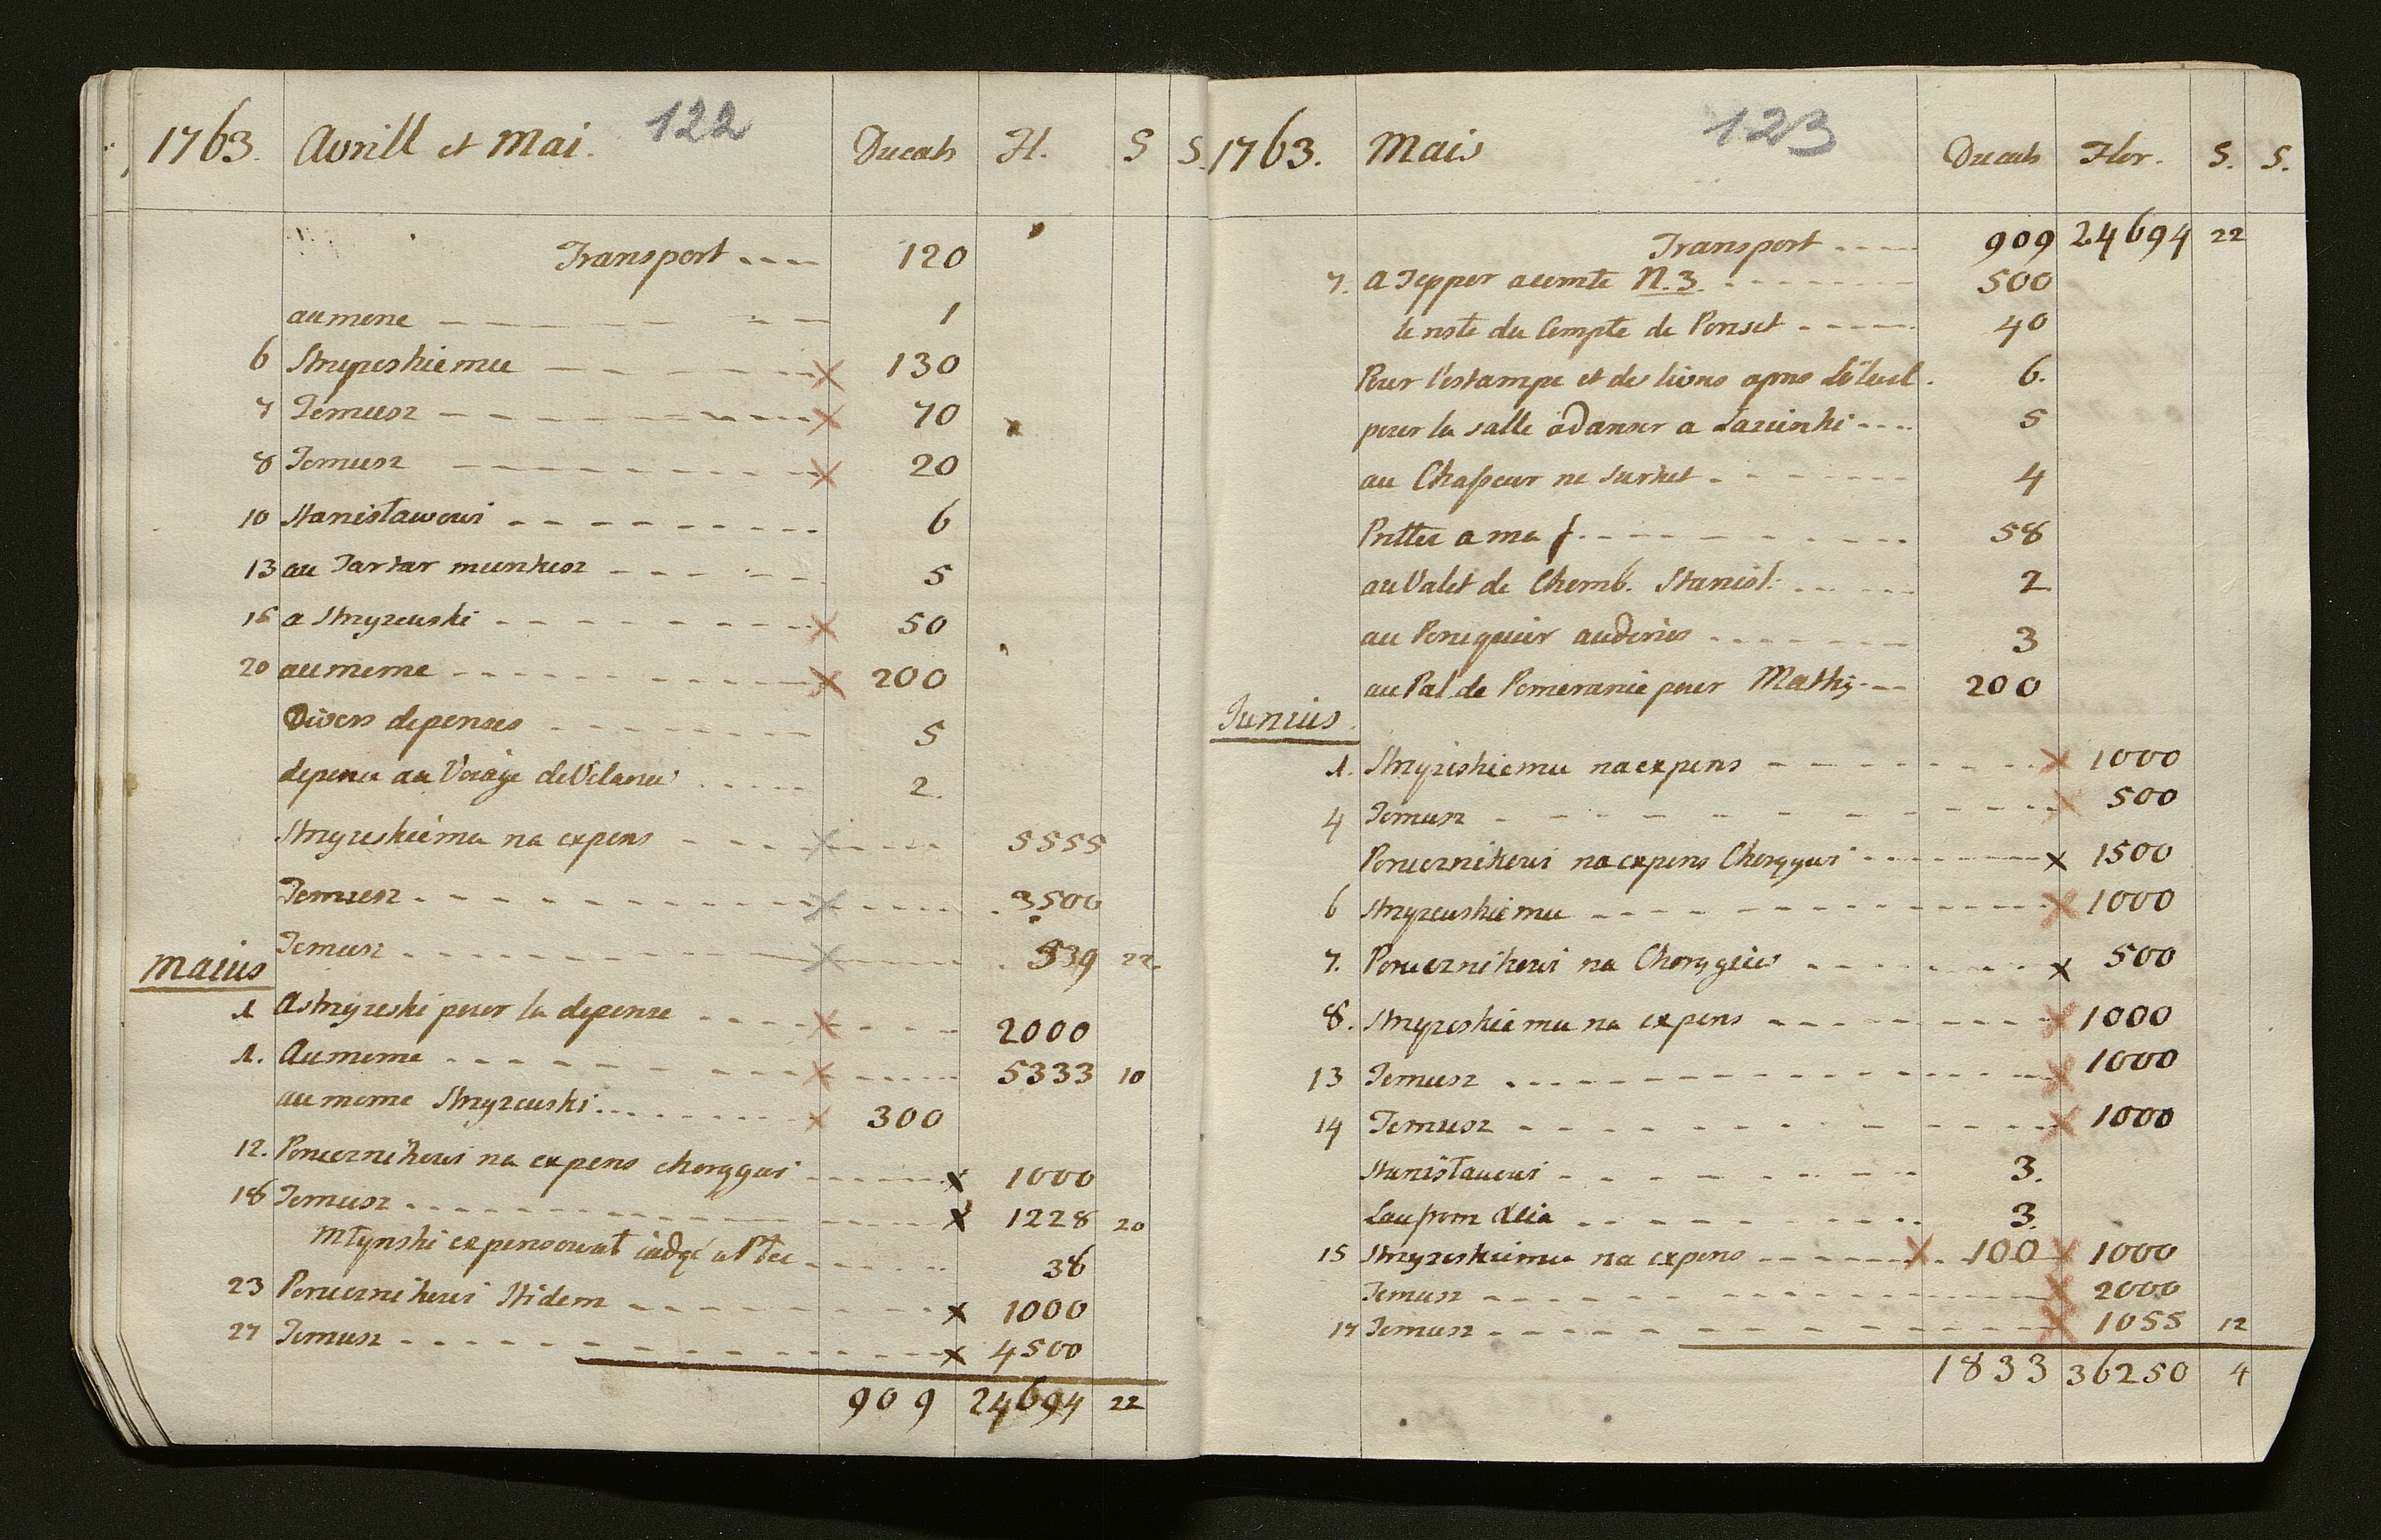 122
1763. Avrill et Mai. Ducats Fl. S S.
Transport 120
au mene 1
6 Stryieskiemu 130
7 Temusz 70
8 Temusz 20
10 Stanisławowi 6
13 au Tartar 5
15 a Stryzeuski 50
20 au meme 200
Divers depenses 5
depense au Voiage de Vilanu 2.
Stryieskiemu na expens 5555
Temusz 3500
Temusz 539 22.
Maius
1 A Stryieski pour la depense 2000
1. Au meme 5333 10
au meme Stryzeuski 300
12. Porucznikowi na expens choryguwi 1000
18 Temusz 1228 20
Młynski expensował 38
23 Porucznikowi Itidem 1000
27 Temusz 4500
909 24694 22
123
1763. Mais Ducats Flor. S. S.
Transport 909 24694 22
7. a Tepper acomte N. 3. 500
le reste du Compte de Ponset 40
Pour l'estampe et des livres apres 6.
pour la salle a Danser a Lazienki 5
au Chasseur 4
Prettee a ma f. 58
au Valet de Chamb. Stanisl. 2
au Peruquier 3
au Pal. de Pomeranie pour Mathy 200
Junius.
1. Stryieskiemu na expens 1000
4 Temusz 500
Porucznikowi na expens Choryguwi 1500
6 Stryzeuskiemu 1000
7. Porucznikowi na Chorągiew 500
8. Stryzeskiemu na expens 1000
13 Temusz 1000
14 Temusz 1000
Stanisławowi 3.
3.
15 Stryzeskiemu na expens 100 1000
Temusz 2000
17 Temusz 1055 12
1833 36250 4